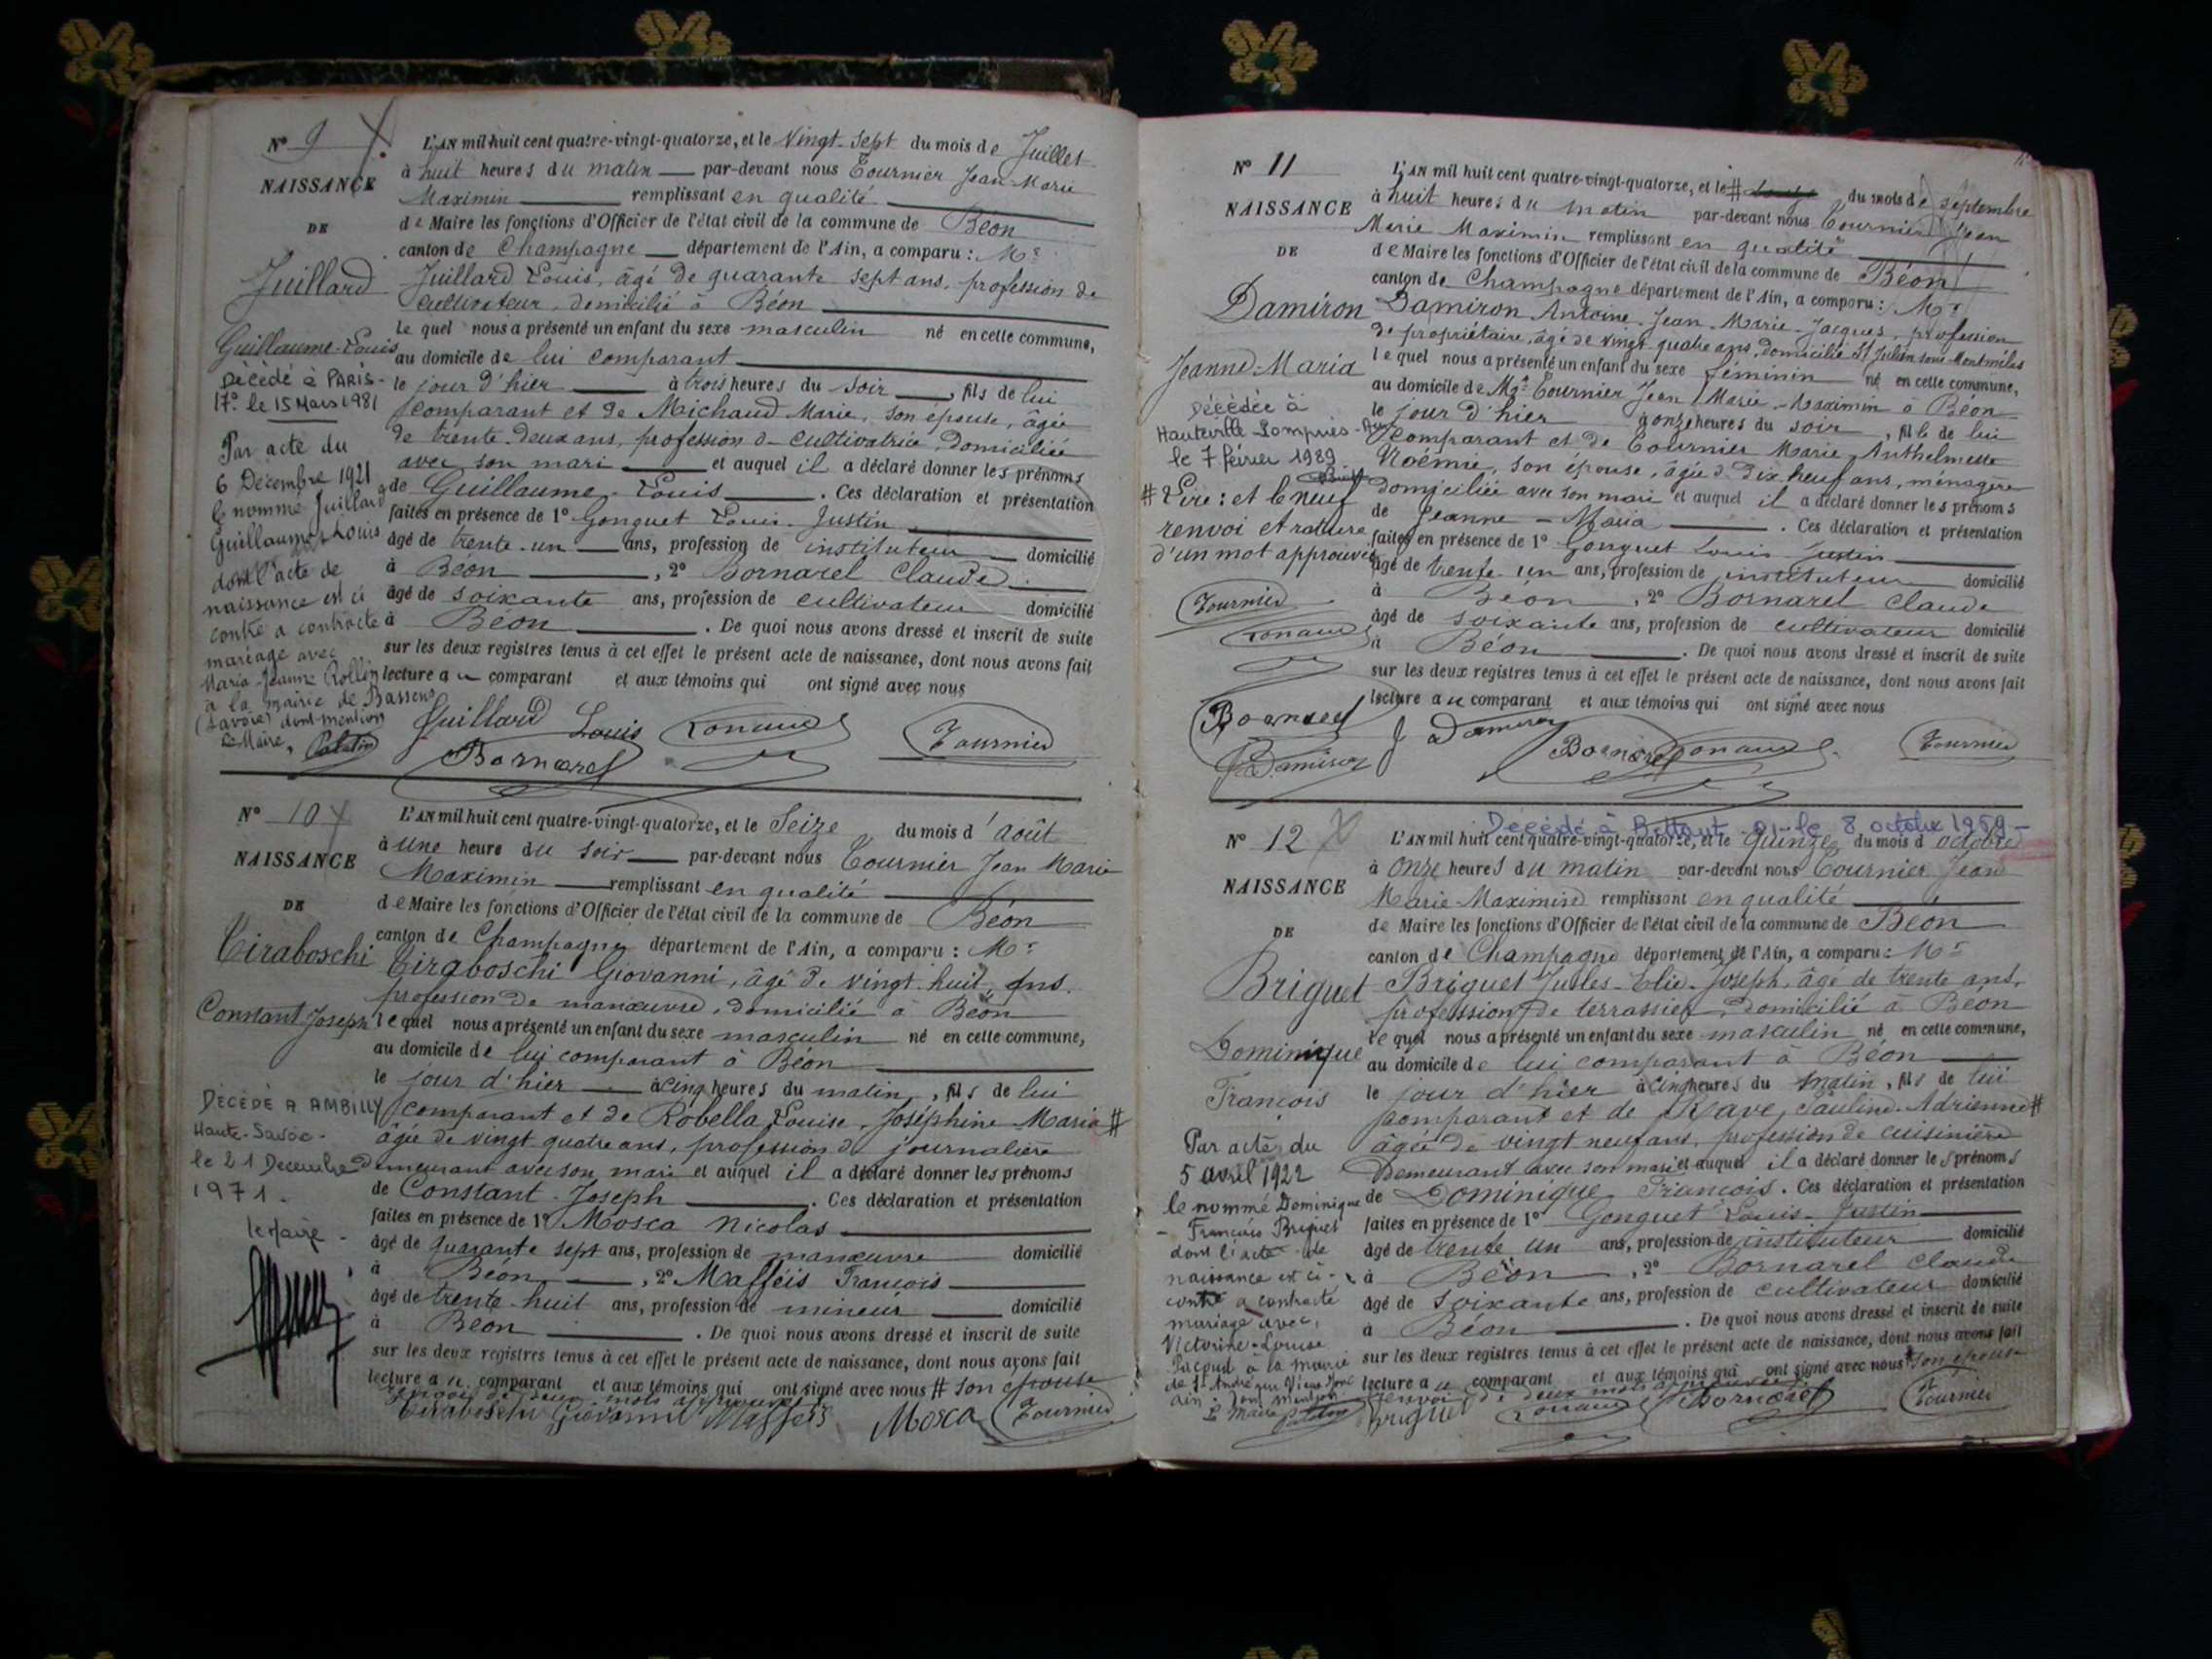 N° 9
NAISSANCE
DE
Juillard
Guillaume-Louis
Décédé à PARIS-
17e le 15 Mars 1981
Par acte du
6 Décembre 1921
le nommé Juillard
Guillaume Louis
dont l'acte de
naissance est ci
contre a contracté
mariage avec
Maria-Jeanne Rollin
à la mairie de Bassens
(Savoie) dont mention
Le Maire,
L'AN mil huit cent quatre-vingt-quatorze, et le Vingt-sept du mois de Juillet
à huit heures du matin par-devant nous Tournier Jean-Marie
Maximin remplissant en qualité
de Maire les fonctions d'Officier de l'état civil de la commune de Béon
canton de Champagne département de l'Ain, a comparu : Mr
Juillard Louis, âgé de quarante sept ans, profession de
cultivateur, domicilié à Béon
Le quel nous a présenté un enfant du sexe masculin né en cette commune,
au domicile de lui comparant
le jour d'hier à trois heures du soir, fils de lui
comparant et de Michaud Marie, son épouse, âgée
de trente-deux ans, profession de cultivatrice, domiciliée
avec son mari et auquel il a déclaré donner les prénoms
de Guillaume-Louis. Ces déclaration et présentation
faites en présence de 1° Gonguet Louis-Justin
âgé de trente-un ans, profession de instituteur domicilié
à Béon, 2° Bornarel Claude
âgé de soixante ans, profession de cultivateur domicilié
à Béon. De quoi nous avons dressé et inscrit de suite
sur les deux registres tenus à cet effet le présent acte de naissance, dont nous avons fait
lecture au comparant et aux témoins qui ont signé avec nous
Juillard Louis Tournier
Bornarel
N° 10
NAISSANCE
DE
Tiraboschi
Constant Joseph
DÉCÉDÉ A AMBILLY
Haute-Savoie-
le 21 Decembre
1971.
le Maire
L'AN mil huit cent quatre-vingt-quatorze, et le Seize du mois d'août
à une heure du soir par-devant nous Tournier Jean Marie
Maximin remplissant en qualité
de Maire les fonctions d'Officier de l'état civil de la commune de Béon
canton de Champagne département de l'Ain, a comparu : Mr
Tiraboschi Giovanni, âgé de vingt-huit ans,
profession de manœuvre, domicilié à Béon
le quel nous a présenté un enfant du sexe masculin né en cette commune,
au domicile de lui comparant à Béon
le jour d'hier à cinq heures du matin, fils de lui
comparant et de Robella Louise, Joséphine-Maria #
âgée de vingt quatre ans, profession de journalière
demeurant avec son mari et auquel il a déclaré donner les prénoms
de Constant-Joseph. Ces déclaration et présentation
faites en présence de 1° Mosca Nicolas
âgé de quarante sept ans, profession de manœuvre domicilié
à Béon, 2° Mafféis François
âgé de trente-huit ans, profession de mineur domicilié
à Béon. De quoi nous avons dressé et inscrit de suite
sur les deux registres tenus à cet effet le présent acte de naissance, dont nous avons fait
lecture au comparant et aux témoins qui ont signé avec nous # son épouse
renvoi de deux mots approuvé
Tiraboschi Giovanni Maffeis Mosca Tournier
N° 11
NAISSANCE
DE
Damiron
Jeanne-Maria
Décédée à
Hauteville-Lompnes-Ain
le 7 février 1989
# Lire : et le neuf
renvoi et rature
d'un mot approuvés
Tournier
Bornarel
J Damiron
L'AN mil huit cent quatre-vingt-quatorze, et le # du mois de septembre
à huit heures du matin par-devant nous Tournier Jean
Marie Maximin remplissant en qualité
de Maire les fonctions d'Officier de l'état civil de la commune de Béon
canton de Champagne département de l'Ain, a comparu : Mr
Damiron Antoine-Jean-Marie-Jacques, profession
de propriétaire, âgé de vingt-quatre ans, domicilié St Julien sous Montmélas
le quel nous a présenté un enfant du sexe féminin né en cette commune,
au domicile de Mr Tournier Jean Marie-Maximin à Béon
le jour d'hier à onze heures du soir, fille de lui
comparant et de Tournier Marie Anthelmette
Noémie, son épouse, âgée de dix neuf ans, ménagère
domiciliée avec son mari et auquel il a déclaré donner les prénoms
de Jeanne-Maria. Ces déclaration et présentation
faites en présence de 1° Gonguet Louis Justin
âgé de trente-un ans, profession de instituteur domicilié
à Béon, 2° Bornarel Claude
âgé de soixante ans, profession de cultivateur domicilié
à Béon. De quoi nous avons dressé et inscrit de suite
sur les deux registres tenus à cet effet le présent acte de naissance, dont nous avons fait
lecture au comparant et aux témoins qui ont signé avec nous
J Damiron Bornarel Tournier
N° 12
NAISSANCE
DE
Briguet
Dominique
François
Par acte du
5 avril 1922
le nommé Dominique
François Briguet
dont l'acte de
naissance est ci-
contre a contracté
mariage avec
Victorine-Louise
à la mairie
Ain
Le Maire
Décédé à Bettant 01 le 8 octobre 1969-
L'AN mil huit cent quatre-vingt-quatorze, et le quinze du mois d'octobre
à onze heures du matin par-devant nous Tournier Jean
Marie-Maximin remplissant en qualité
de Maire les fonctions d'Officier de l'état civil de la commune de Béon
canton de Champagne département de l'Ain, a comparu : Mr
Briguet Jules-Elie-Joseph, âgé de trente ans,
profession de terrassier, domicilié à Béon
le quel nous a présenté un enfant du sexe masculin né en cette commune,
au domicile de lui comparant à Béon
le jour d'hier à cinq heures du matin, fils de lui
comparant et de Rave, Pauline-Adrienne #
âgée de vingt neuf ans, profession de cuisinière
Demeurant avec son mari et auquel il a déclaré donner les prénoms
de Dominique François. Ces déclaration et présentation
faites en présence de 1° Gonguet Louis-Justin
âgé de trente un ans, profession de instituteur domicilié
à Béon, 2° Bornarel Claude
âgé de soixante ans, profession de cultivateur domicilié
à Béon. De quoi nous avons dressé et inscrit de suite
sur les deux registres tenus à cet effet le présent acte de naissance, dont nous avons fait
lecture au comparant et aux témoins qui ont signé avec nous # son épouse
renvoi de deux mots approuvé
Briguet Bornarel Tournier